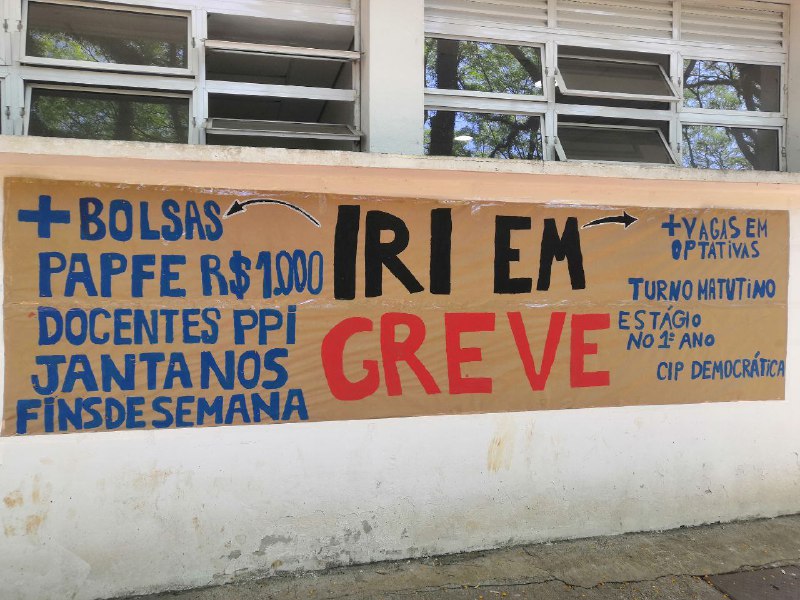 + BOLSAS
PAPFE R$1.000
DOCENTES PPI
JANTA NOS
FINS DE SEMANA
IRI EM
GREVE
+ VAGAS EM
OPTATIVAS
TURNO MATUTINO
ESTÁGIO
NO 1º ANO
CIP DEMOCRÁTICA